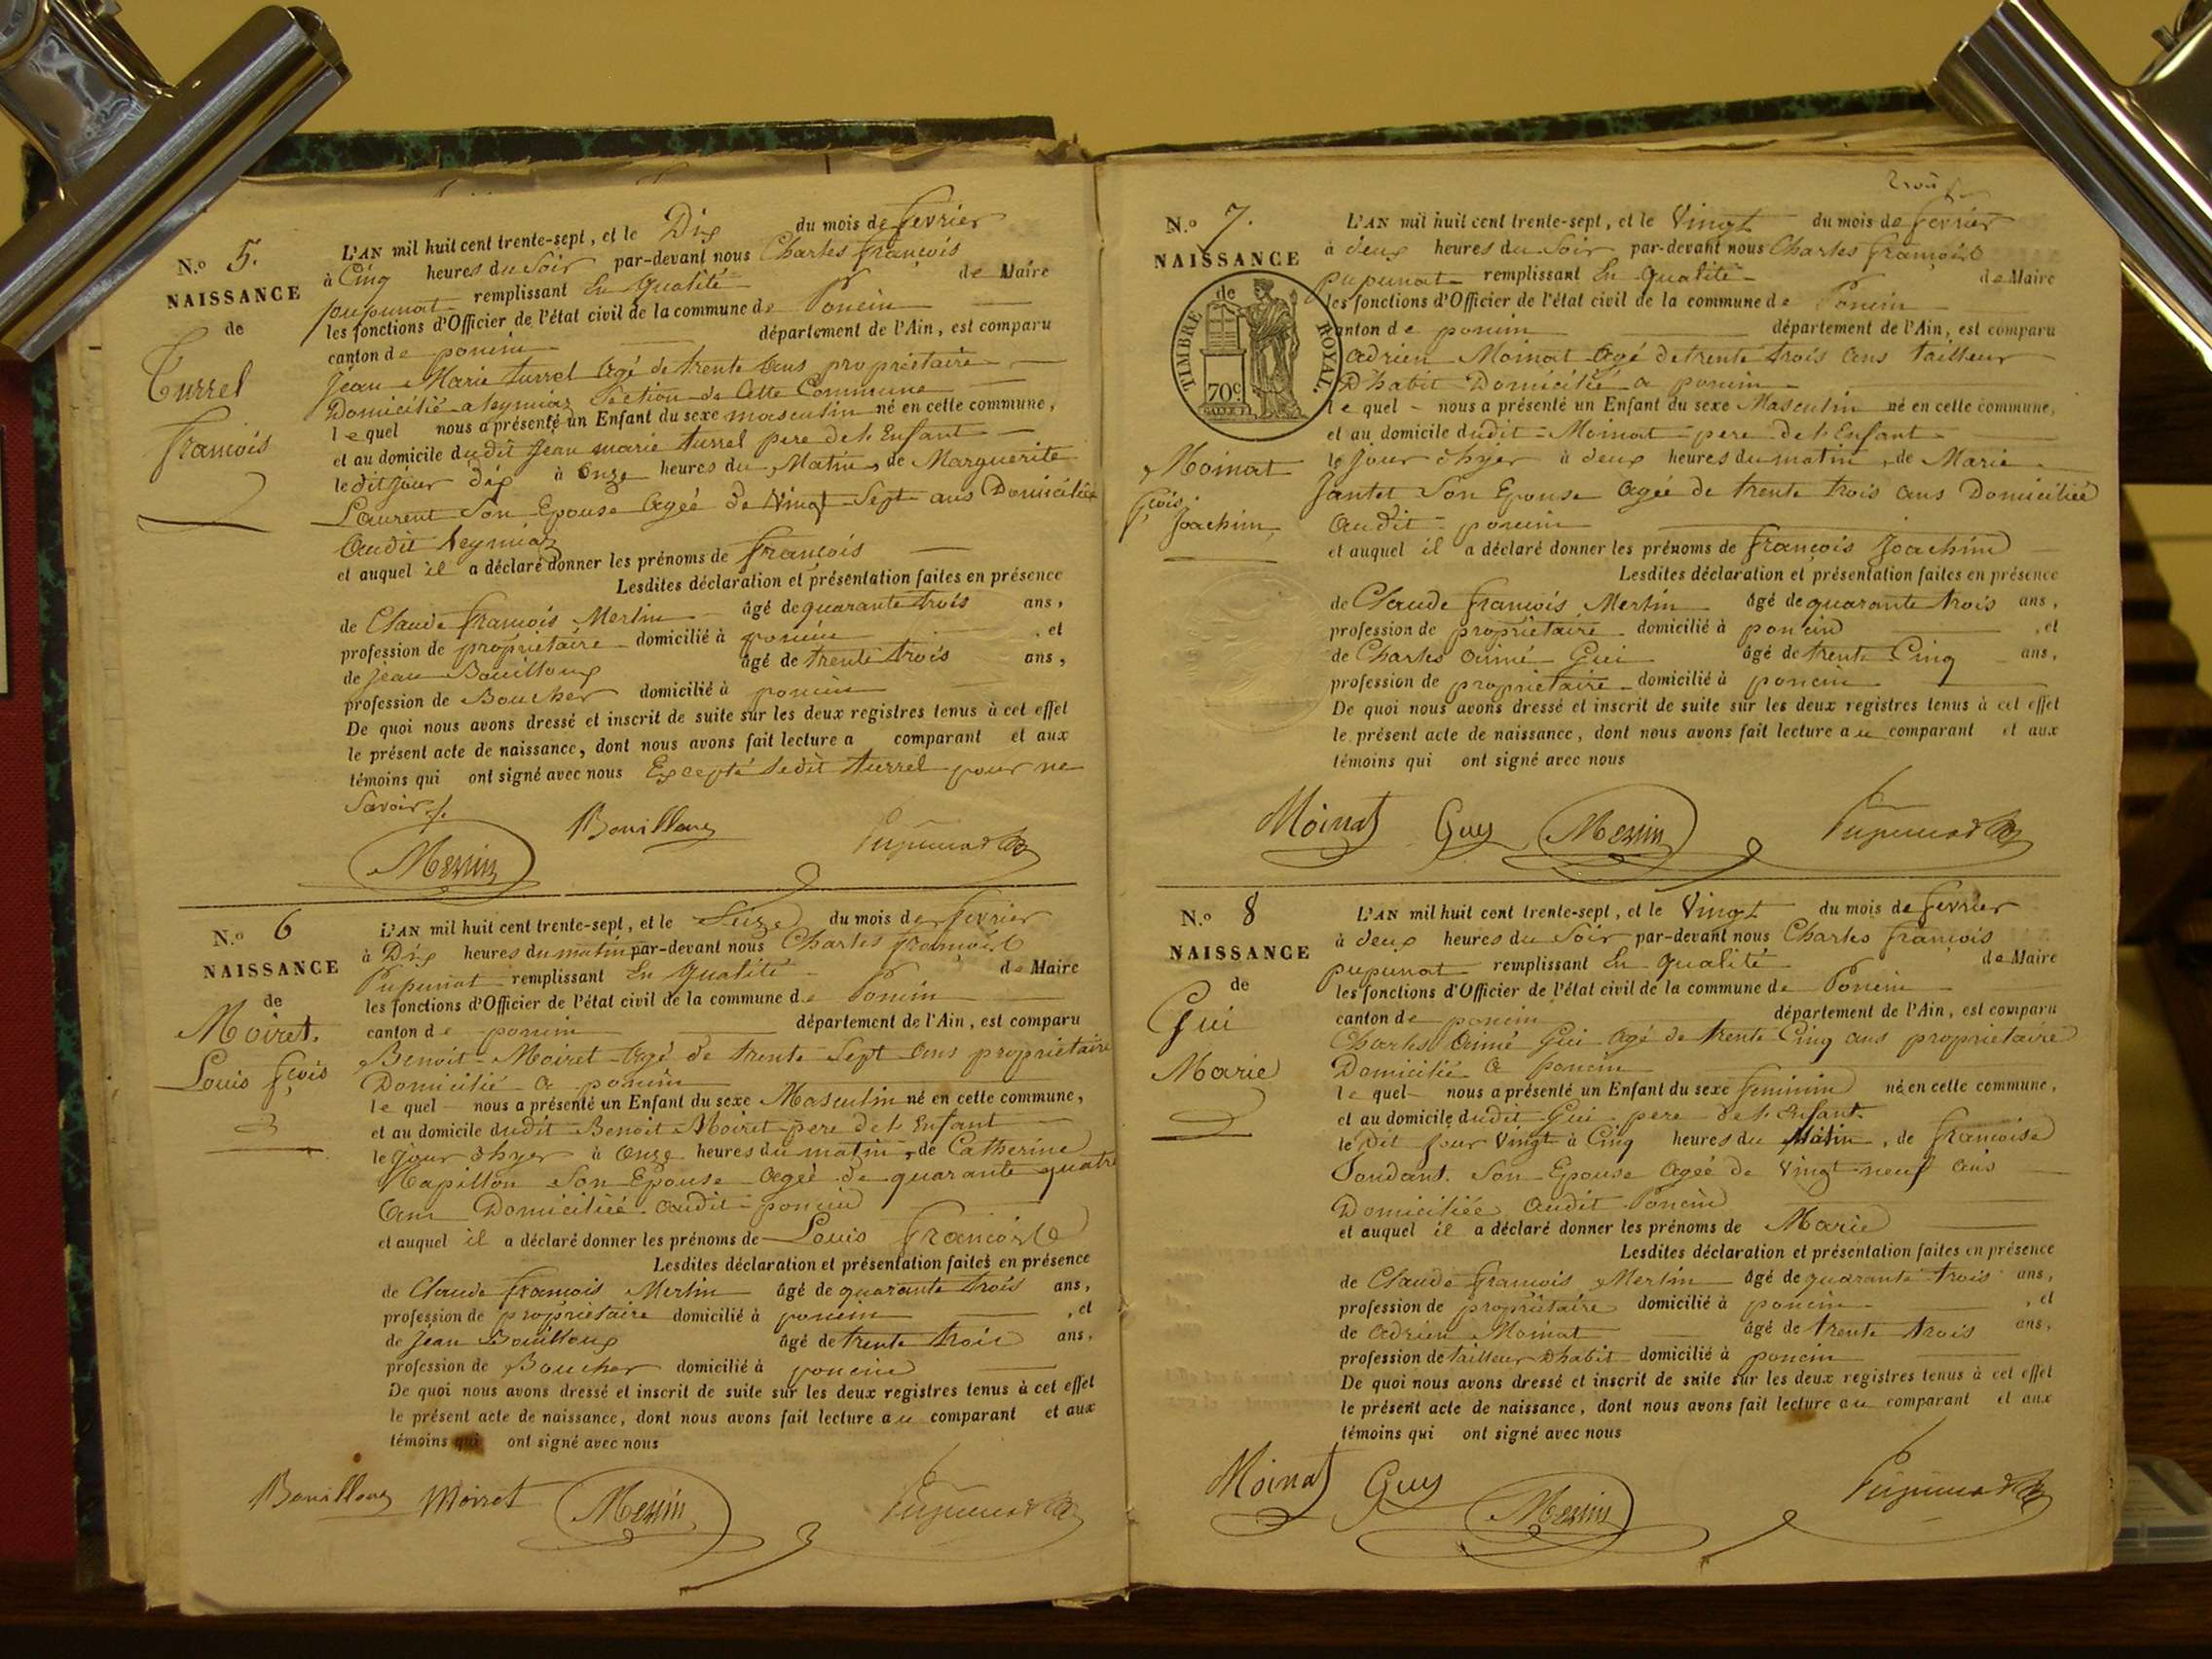 N.o 5.
NAISSANCE
de
Turrel
François
L'AN mil huit cent trente-sept, et le Dix du mois de fevrier
à Cinq heures du Soir par-devant nous Charles françois
pupunat remplissant En qualité de Maire
les fonctions d'Officier de l'état civil de la commune de Poncin
canton de poncin département de l'Ain, est comparu
Jean Marie turrel Agé de trente Ans propriétaire
Domicilié a leymiaz Section de Cette Commune
le quel nous a présenté un Enfant du sexe masculin né en cette commune,
et au domicile dudit Jean marie turrel pere de l'Enfant
le dit jour dix à Onze heures du Matin, de Marguerite
Laurent Son Epouse Agée de Vingt Sept ans Domiciliée
Audit leymiaz
et auquel il a déclaré donner les prénoms de françois
Lesdites déclaration et présentation faites en présence
de Claude françois Merlin âgé de quarante trois ans,
profession de propriétaire domicilié à poncin , et
de Jean Bouilloux âgé de trente trois ans,
profession de Boucher domicilié à poncin
De quoi nous avons dressé et inscrit de suite sur les deux registres tenus à cet effet
le présent acte de naissance, dont nous avons fait lecture a comparant et aux
témoins qui ont signé avec nous Excepté ledit turrel pour ne
Savoir /.
Merlin Bouilloux Pupunat
N.o 6
NAISSANCE
de
Moiret.
Louis fçois
L'AN mil huit cent trente-sept, et le Seize du mois de fevrier
à Dix heures du matin par-devant nous Charles françois
Pupunat remplissant En qualité de Maire
les fonctions d'Officier de l'état civil de la commune de Poncin
canton de poncin département de l'Ain, est comparu
Benoit Moiret Agé de trente Sept Ans propriétaire
Domicilié a poncin
le quel nous a présenté un Enfant du sexe Masculin né en cette commune,
et au domicile dudit Benoit Moiret pere de l'Enfant
le jour d'hyer à Onze heures du matin, de Catherine
Papillon Son Epouse Agée de quarante quatre
Ans Domiciliée audit poncin
et auquel il a déclaré donner les prénoms de Louis François
Lesdites déclaration et présentation faites en présence
de Claude françois Merlin âgé de quarante trois ans,
profession de propriétaire domicilié à poncin , et
de Jean Bouilloux âgé de trente trois ans,
profession de Boucher domicilié à poncin
De quoi nous avons dressé et inscrit de suite sur les deux registres tenus à cet effet
le présent acte de naissance, dont nous avons fait lecture au comparant et aux
témoins qui ont signé avec nous
Bouilloux Moiret Merlin Pupunat
N.o 7.
NAISSANCE
de
TIMBRE ROYAL.
70c
Moinat
fçois
Joachim
L'AN mil huit cent trente-sept, et le Vingt du mois de fevrier
à deux heures du Soir par-devant nous Charles françois
pupunat remplissant En qualité de Maire
les fonctions d'Officier de l'état civil de la commune de Poncin
canton de poncin département de l'Ain, est comparu
Adrien Moinat Agé de trente trois ans tailleur
D'habit Domicilié a poncin
le quel nous a présenté un Enfant du sexe Masculin né en cette commune,
et au domicile dudit Moinat pere de l'Enfant
le jour d'hyer à deux heures du matin, de Marie
Jantet Son Epouse Agée de trente trois ans Domiciliée
Audit poncin
et auquel il a déclaré donner les prénoms de françois Joachim
Lesdites déclaration et présentation faites en présence
de Claude françois Merlin âgé de quarante trois ans,
profession de propriétaire domicilié à poncin , et
de Charles Aimé Gui âgé de trente Cinq ans,
profession de propriétaire domicilié à poncin
De quoi nous avons dressé et inscrit de suite sur les deux registres tenus à cet effet
le présent acte de naissance, dont nous avons fait lecture au comparant et aux
témoins qui ont signé avec nous
Moinat Guy Merlin Pupunat
N.o 8
NAISSANCE
de
Gui
Marie
L'AN mil huit cent trente-sept, et le Vingt du mois de fevrier
à deux heures du Soir par-devant nous Charles françois
pupunat remplissant En qualité de Maire
les fonctions d'Officier de l'état civil de la commune de Poncin
canton de poncin département de l'Ain, est comparu
Charles Aimé Gui Agé de trente Cinq ans propriétaire
Domicilié a poncin
le quel nous a présenté un Enfant du sexe feminin né en cette commune,
et au domicile dudit Gui pere de l'Enfant.
le Dit jour Vingt à Cinq heures du Matin, de francoise
Son Epouse Agée de Vingt neuf ans
Domiciliée Audit Poncin
et auquel il a déclaré donner les prénoms de Marie
Lesdites déclaration et présentation faites en présence
de Claude françois Merlin âgé de quarante trois ans,
profession de propriétaire domicilié à poncin , et
de Adrien Moinat âgé de trente trois ans,
profession de tailleur D'habit domicilié à poncin
De quoi nous avons dressé et inscrit de suite sur les deux registres tenus à cet effet
le présent acte de naissance, dont nous avons fait lecture au comparant et aux
témoins qui ont signé avec nous
Moinat Guy Merlin Pupunat